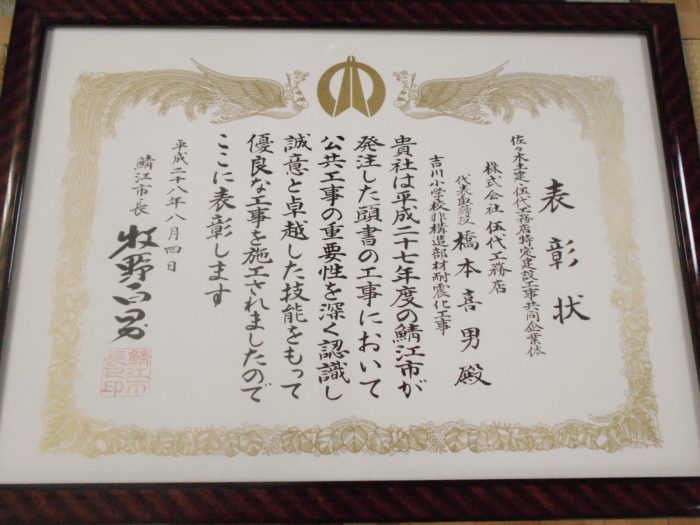 表彰状
佐々木土建・伍代工務店特定建設工事共同企業体
株式会社 伍代工務店
代表取締役 橋本喜男殿
吉川小学校非構造部材耐震化工事
貴社は平成二十七年度の鯖江市が
発注した頭書の工事において
公共工事の重要性を深く認識し
誠意と卓越した技能をもって
優良な工事を施工されましたので
ここに表彰します
平成二十八年八月四日
鯖江市長 牧野百男
鯖江市
長之印